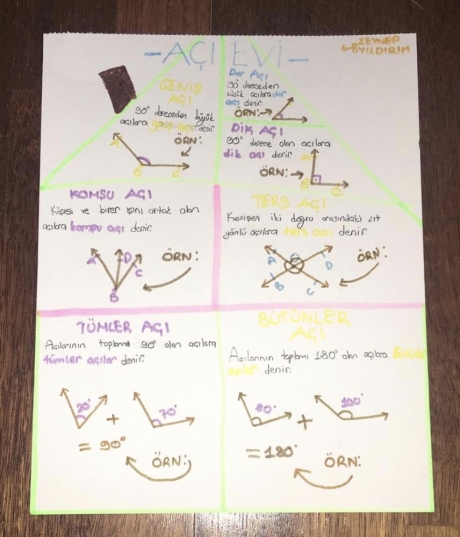 -AÇI EVİ-
ZEYNEP
6-B YILDIRIM
GENİŞ
AÇI
90° dereceden büyük
açılara geniş açı denir
ÖRN:
A
B
C
Dar Açı
90 dereceden
küçük açılara dar
açı denir
ÖRN:
DİK AÇI
90° derece olan açılara
dik açı denir
ÖRN:
A
B
C
KOMŞU AÇI
Köşesi ve birer ışını ortak olan
açılara komşu açı denir.
ÖRN:
A
D
C
B
TERS AÇI
Kesişen iki doğru arasındaki zıt
yönlü açılara ters açı denir
ÖRN:
A
D
B
C
TÜMLER AÇI
Açılarının toplamı 90° olan açılara
tümler açılar denir.
20°
+
70°
= 90°
ÖRN:
BÜTÜNLER
AÇI
Açılarının toplamı 180° olan açılara bütünler
açılar denir.
80°
+
100°
=180°
ÖRN: